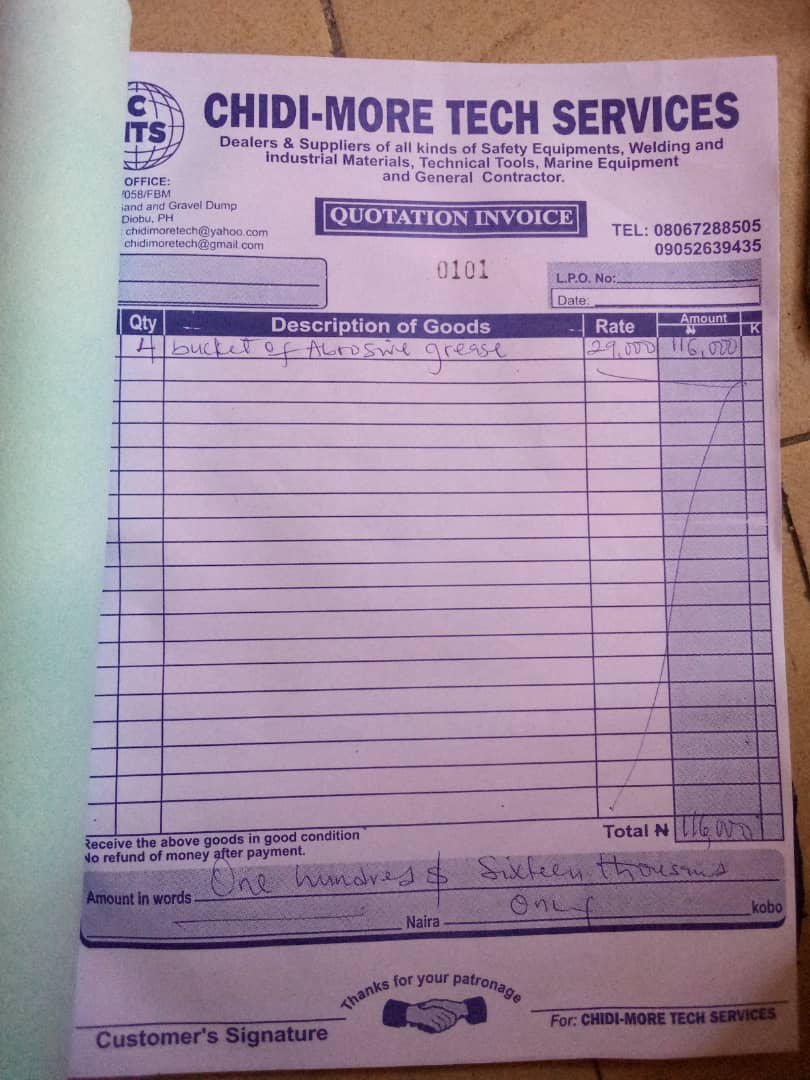 C
ITS
CHIDI-MORE TECH SERVICES
Dealers & Suppliers of all kinds of Safety Equipments, Welding and
Industrial Materials, Technical Tools, Marine Equipment
and General Contractor.
OFFICE:
/058/FBM
and and Gravel Dump
Diobu, PH
: chidimoretech@yahoo.com
chidimoretech@gmail.com
QUOTATION INVOICE
TEL: 08067288505
09052639435
0101
L.P.O. No:
Date:
Qty Description of Goods Rate Amount
₦ K
4 bucket of Abrosive grease 29,000 116,000
Total ₦ 116,000
Receive the above goods in good condition
No refund of money after payment.
Amount in words One hundred & Sixteen thousand
Naira Only kobo
Thanks for your patronage
Customer's Signature
For: CHIDI-MORE TECH SERVICES